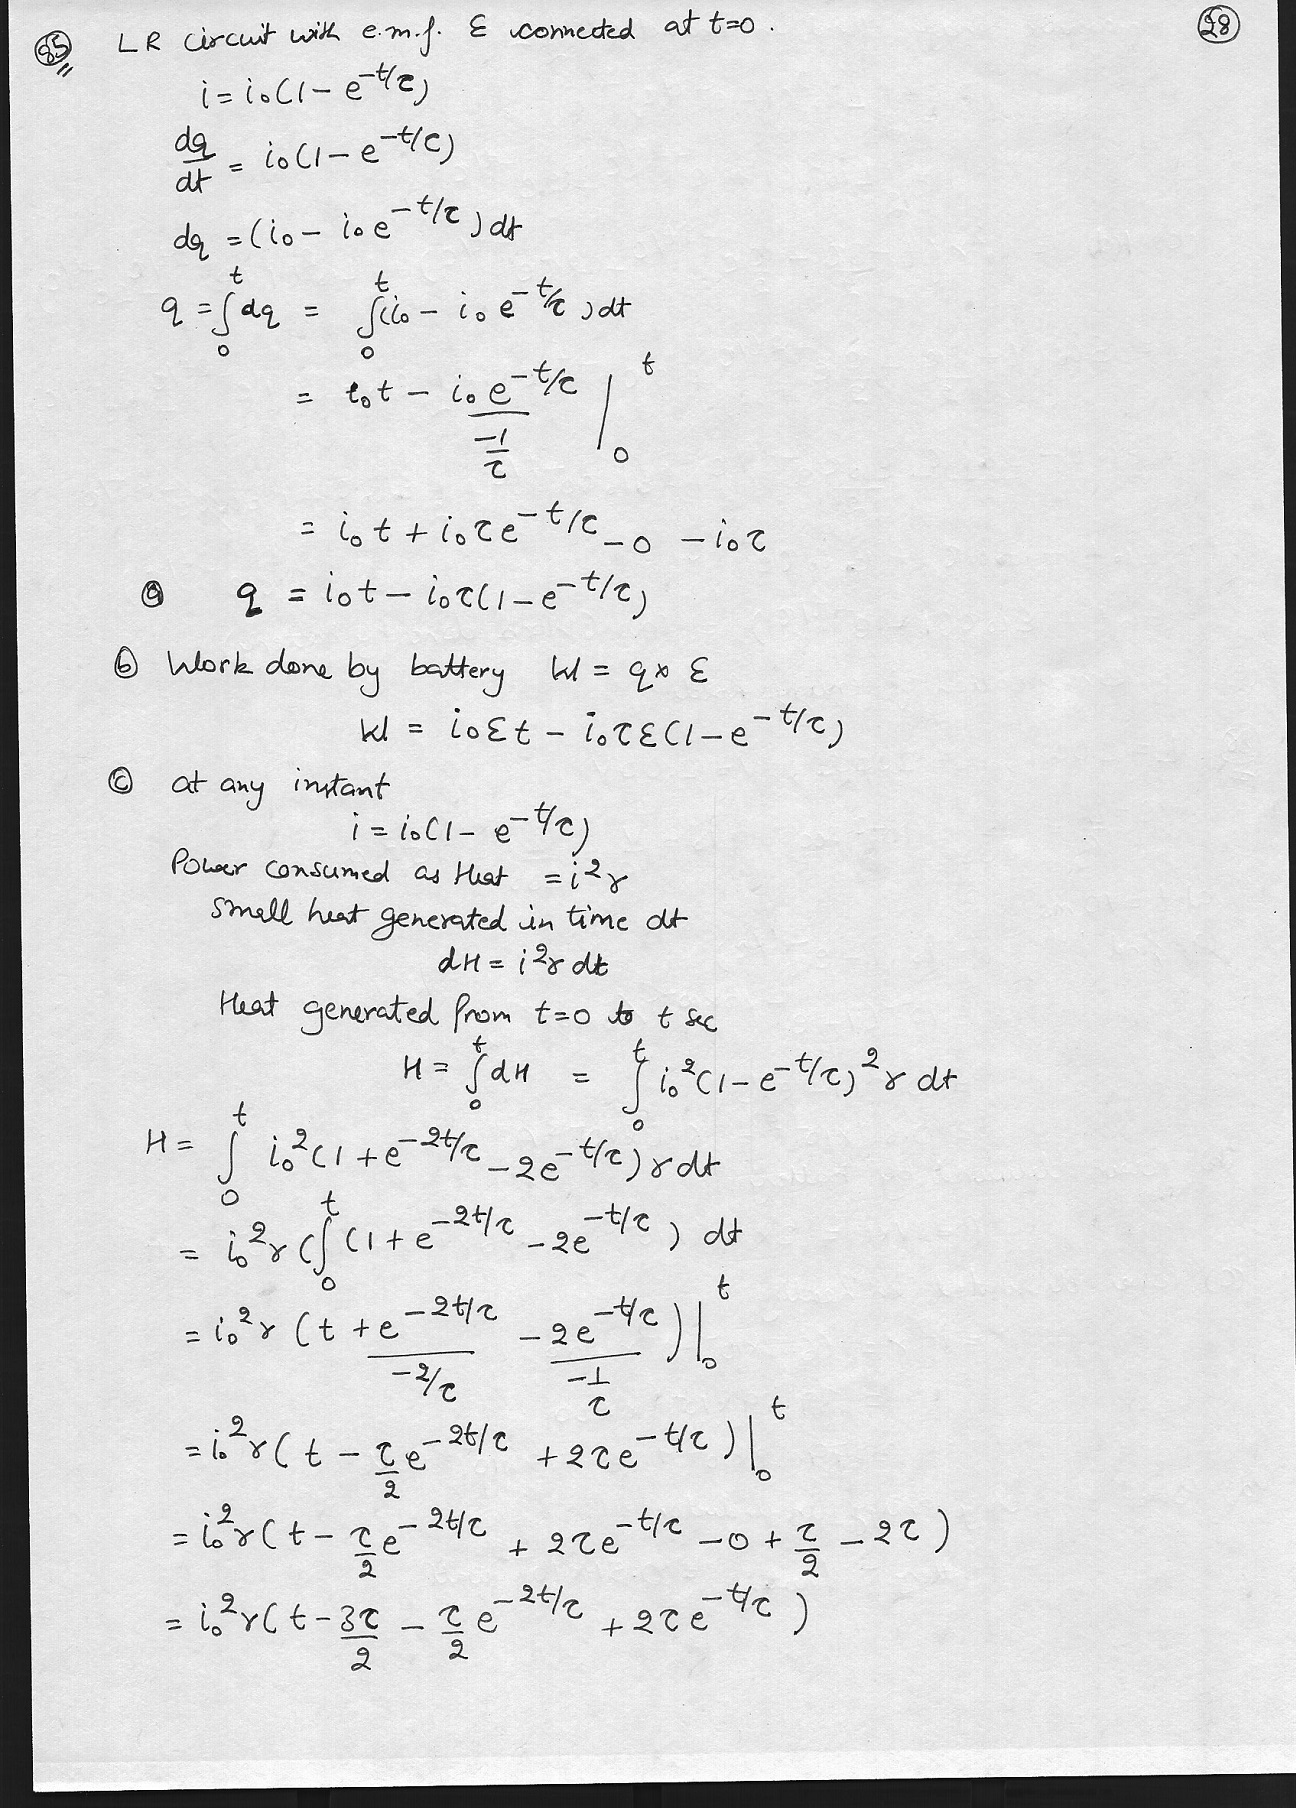 85 LR circuit with e.m.f. ε connected at t=0. 28
i = i₀(1 - e^{-t/τ})
dq/dt = i₀(1 - e^{-t/τ})
dq = (i₀ - i₀e^{-t/τ})dt
q = ∫₀^t dq = ∫₀^t (i₀ - i₀ e^{-t/τ})dt
= i₀t - i₀e^{-t/τ}/(-1/τ) |₀^t
= i₀t + i₀τe^{-t/τ} - 0 - i₀τ
ⓐ q = i₀t - i₀τ(1 - e^{-t/τ})
ⓑ Work done by battery W = q × ε
W = i₀εt - i₀τε(1 - e^{-t/τ})
ⓒ at any instant
i = i₀(1 - e^{-t/τ})
Power consumed as Heat = i²r
Small heat generated in time dt
dH = i²r dt
Heat generated from t=0 to t sec
H = ∫₀^t dH = ∫₀^t i₀²(1 - e^{-t/τ})² r dt
H = ∫₀^t i₀²(1 + e^{-2t/τ} - 2e^{-t/τ}) r dt
= i₀²r (∫₀^t (1 + e^{-2t/τ} - 2e^{-t/τ}) dt
= i₀²r (t + e^{-2t/τ}/(-2/τ) - 2e^{-t/τ}/(-1/τ)) |₀^t
= i₀²r (t - τ/2 e^{-2t/τ} + 2τe^{-t/τ}) |₀^t
= i₀²r (t - τ/2 e^{-2t/τ} + 2τe^{-t/τ} - 0 + τ/2 - 2τ)
= i₀²r (t - 3τ/2 - τ/2 e^{-2t/τ} + 2τe^{-t/τ})